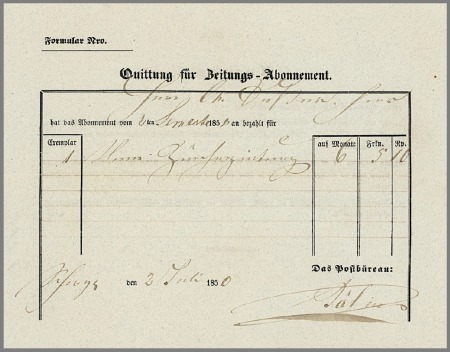 Formular Nro.
Quittung für Zeitungs-Abonnement.
Herr
hat das Abonnement vom 2ten Semester 1850 an bezahlt für
Exemplar auf Monate Frkn. Rp.
1 Neue Zürcherzeitung 6 5 10
den 2 Juli 1850
Das Postbüreau: